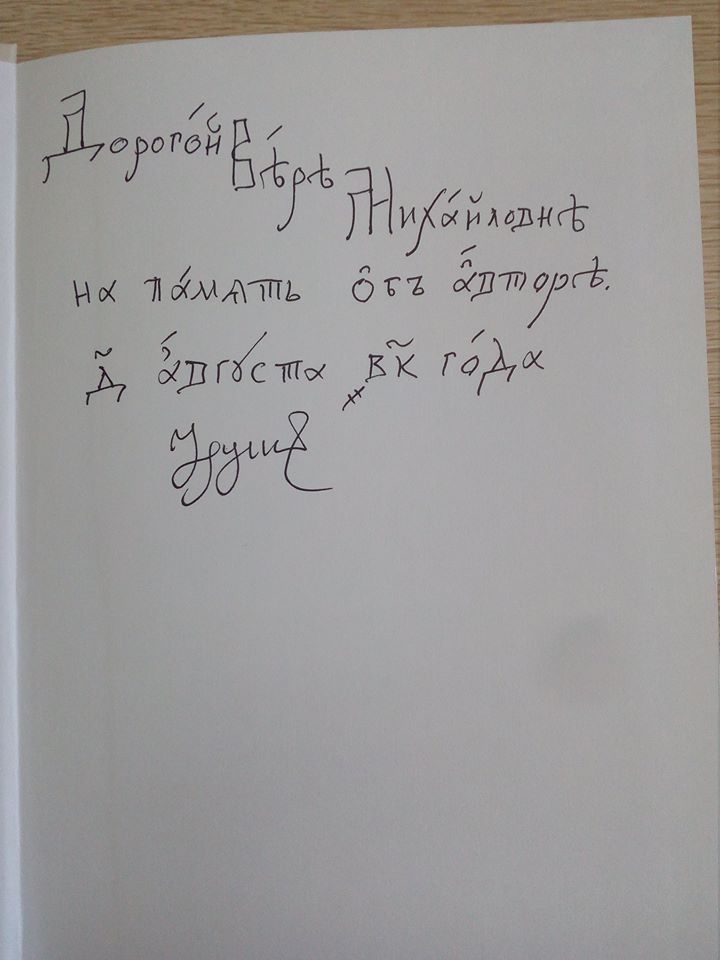 Дорого́й Вѣ́рѣ
Миха́йловнѣ
на па́мять отъ а҆́вторѣ.
д҃ а҆́вгꙋста ҂вк҃ го́да